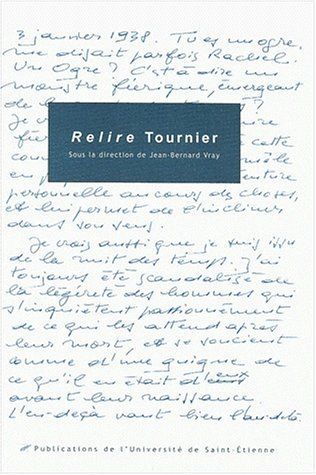 3 janvier 1938. Tu es un ogre,
me disait parfois Rachel.
Un Ogre ? C'est-à-dire un
monstre féérique, émergeant
de la
Je
fée
cette
en
personnelle au cours des choses,
et lui permet de l'incliner
dans son sens.
Relire Tournier
Sous la direction de Jean-Bernard Vray
Je crois aussi que je suis issu
de la nuit des temps. J'ai
toujours été scandalisé de
la légèreté des hommes qui
s'inquiètent passionnément
de ce qui les attend après
leur mort, et se soucient
comme d'une guigne de
ce qu'il en était d'eux
avant leur naissance.
L'en-deçà vaut bien l'au-delà.
Publications de l'Université de Saint-Étienne